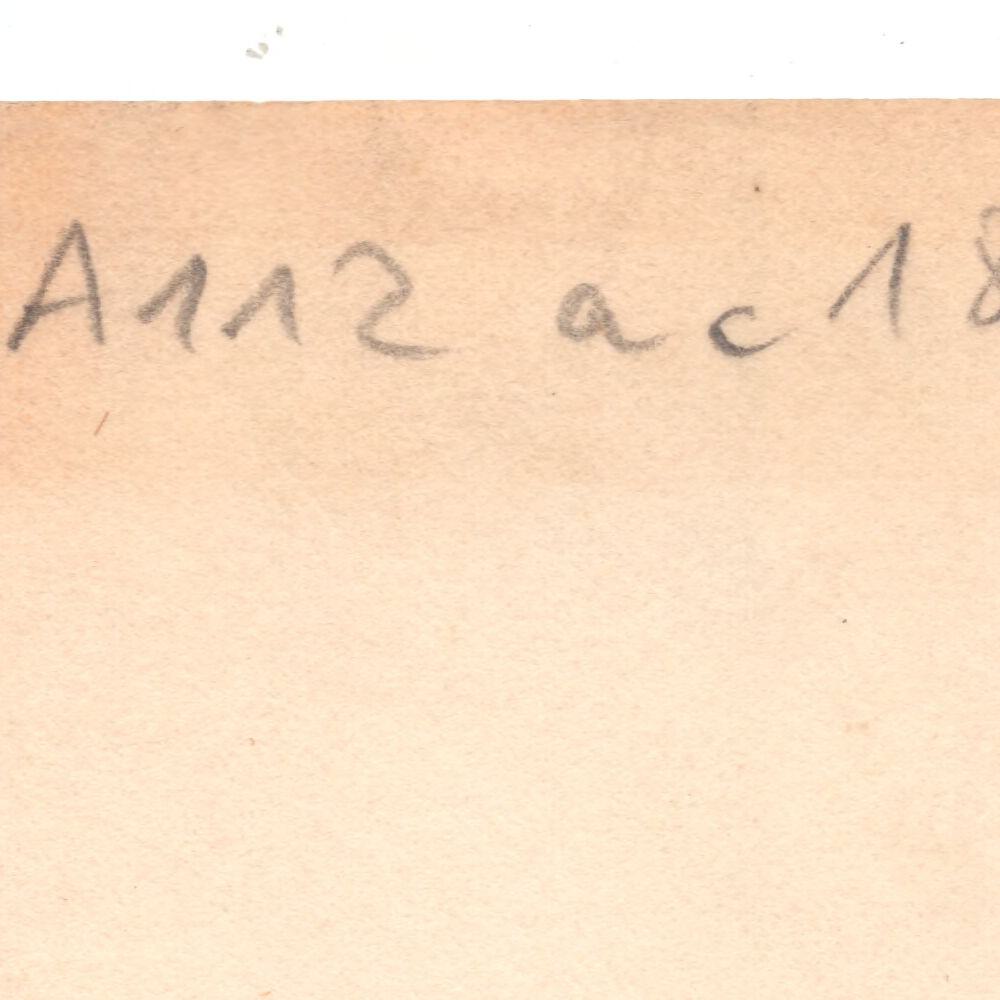 A112 a c 18